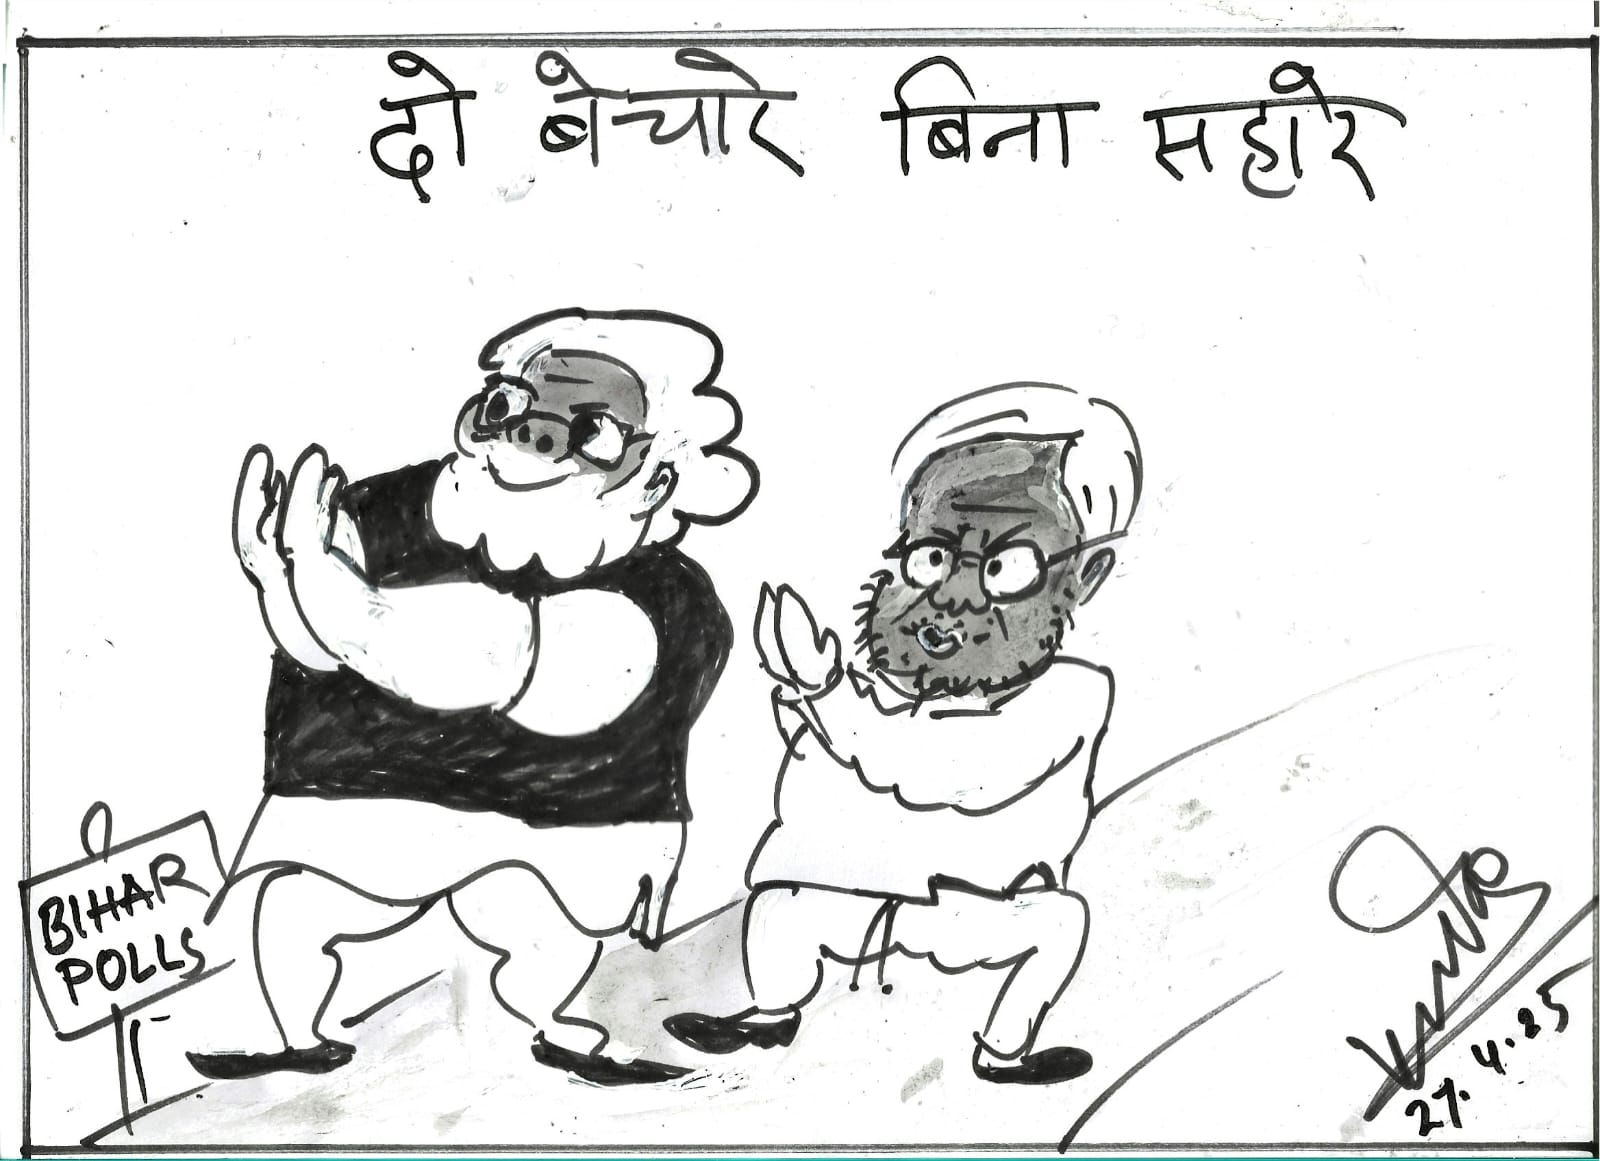 दो बेचारे बिना सहारे
BIHAR
POLLS
27.4.25